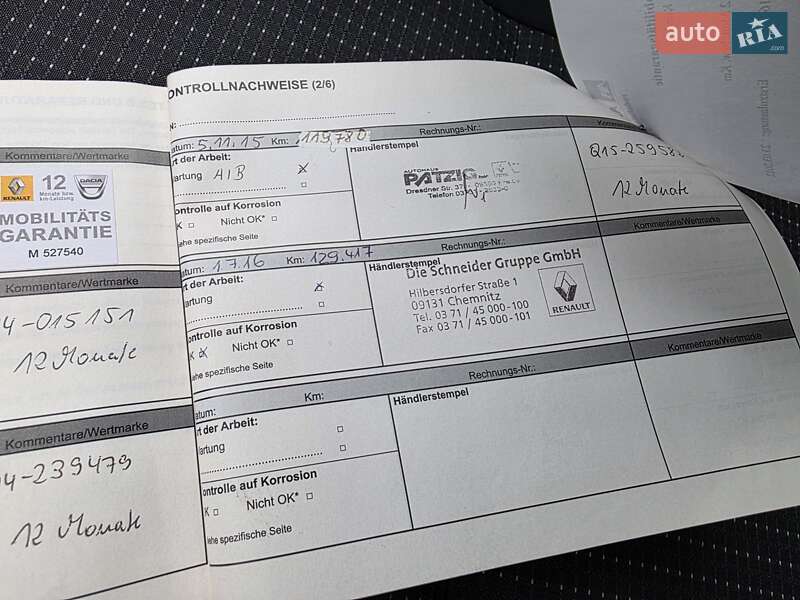 auto RIA.com
Kommentare/Wertmarke
RENAULT
12
Monate bzw.
km-Leistung
DACIA
MOBILITÄTS
GARANTIE
M 527540
Kommentare/Wertmarke
4-015151
12 Monate
Kommentare/Wertmarke
4-239479
12 Monate
ONTROLLNACHWEISE (2/6)
N:
atum: 5.11.15 Km: 119.780 Rechnungs-Nr.: Kommentare/Wertmarke
rt der Arbeit:
artung A/B
Händlerstempel
AUTOHAUS
PATZIG
Dresdner Str.
Telefon
Q15-259582
12 Monate
ontrolle auf Korrosion
K Nicht OK*
ehe spezifische Seite
atum: 1.7.16 Km: 129.417 Rechnungs-Nr.: Kommentare/Wertmarke
rt der Arbeit:
artung
Händlerstempel
Die Schneider Gruppe GmbH
Hilbersdorfer Straße 1
09131 Chemnitz
Tel. 03 71 / 45 000-100
Fax 03 71 / 45 000-101
RENAULT
ontrolle auf Korrosion
K Nicht OK*
ehe spezifische Seite
atum: Km: Rechnungs-Nr.: Kommentare/Wertmarke
rt der Arbeit:
artung
Händlerstempel
ontrolle auf Korrosion
K Nicht OK*
ehe spezifische Seite